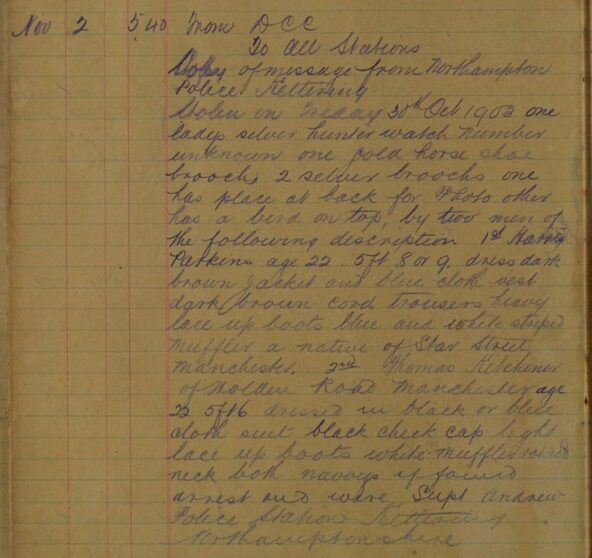 Nov 2 5.40 From DCC
To all Stations
Copy of message from Northampton
Police Kettering
Stolen on Friday 30th Oct 1903 one
ladys silver hunter watch number
unknown one gold horse shoe
brooch, 2 selver broochs one
has place at back for Photo other
has a berd on top, by two men of
the following description 1st Harry
Parkins age 22. 5ft 8 or 9. dress dark
brown Jacket and blue cloth vest
dark brown cord trousers heavy
lace up boots blue and white striped
muffler a native of Star Street
Manchester. 2nd Thomas Kitchener
of Holden Road Manchester age
22 5ft6 dressed in black or blue
cloth suit black check cap light
lace up boots white muffler round
neck both navvys if found
arrest and wire Supt Andrew
Police Station Kettering
Northamptonshire